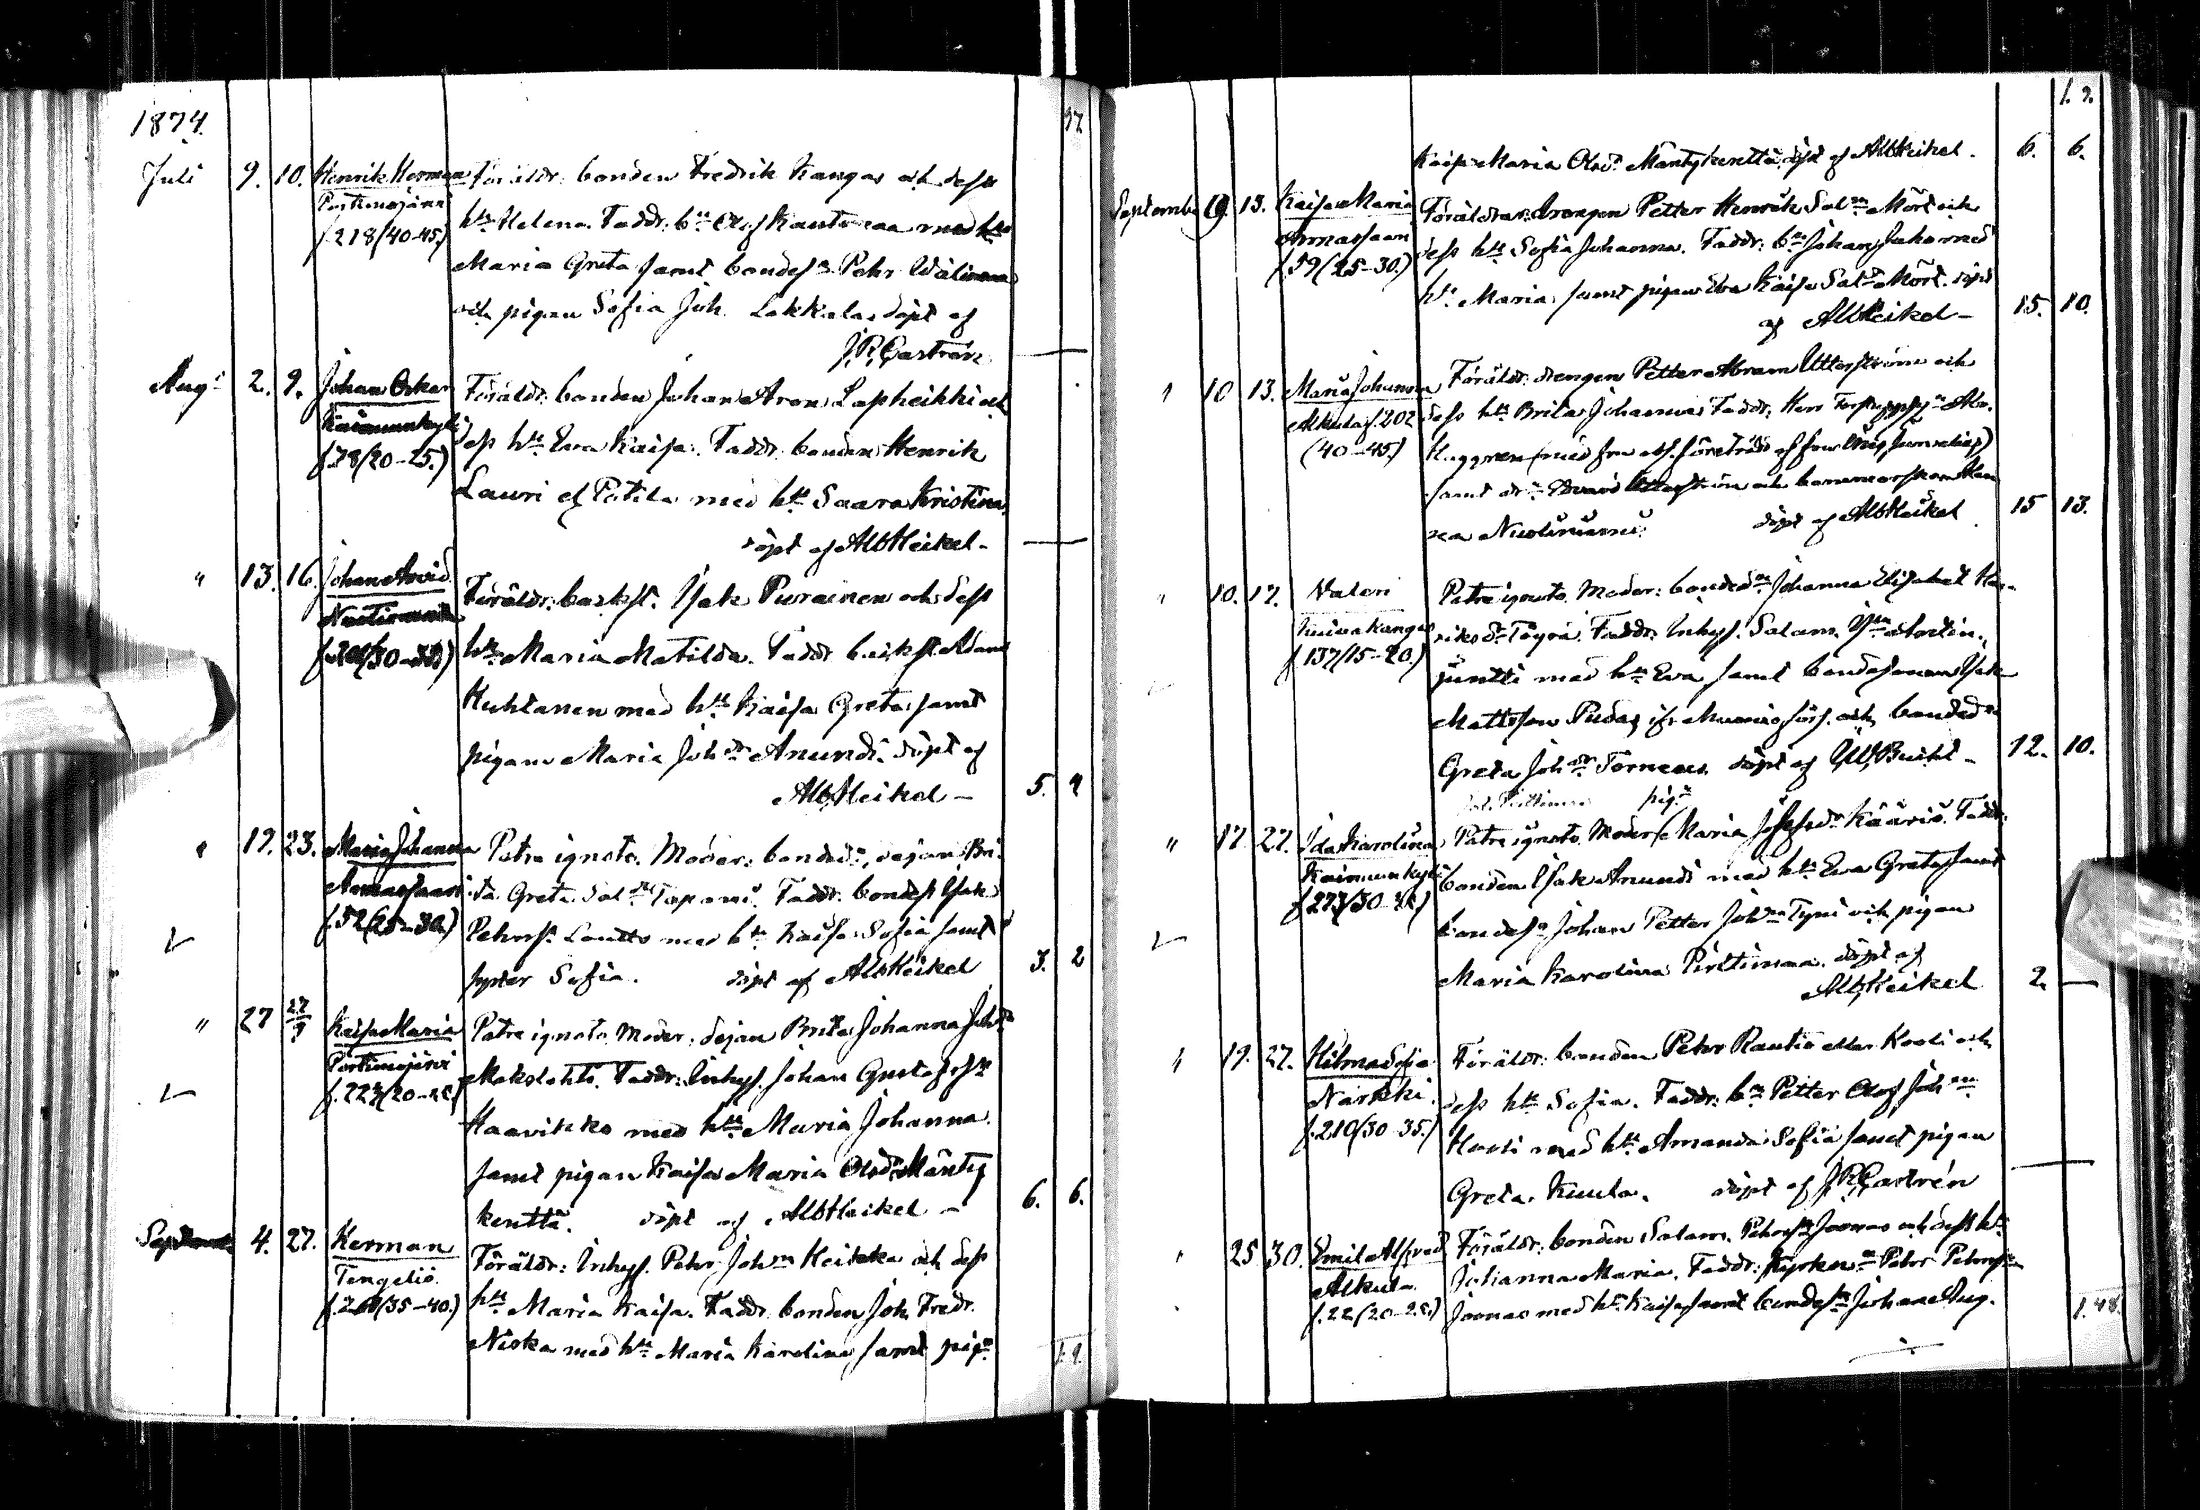 1874.
Juli 9. 10. Henrik Herman Föräldr: bonden Fredrik Kangas och dess
Portimojärvi
f. 218 (40-45.)
h:u Helena. Faddr: b:n Olof med h:u
Maria Greta samt bondes:n Pehr Välimaa
och pigan Sofia Joh. Lakkala, döpt af
J.R. Castrén
Aug: 2. 9. Johan Oskar Föräldr: bonden Johan Aron Lapheikki och
Kainuunkylä
f. 78 (20-25.)
dess h:u Eva Kaisa. Faddr: bonden Henrik
Lauri el Potila med h:u Saara Kristina,
döpt af Alb Heikel -
" 13. 16. Johan Arvid
Föräldr: backst. Isak Purainen och dess
h:u Maria Matilda. Faddr backst. Adam
Kuhlanen med h:u Kaisa Greta samt
pigan Maria Joh:dr Anundi. döpt af
Alb. Heikel - 5. 9
" 19. 23. Maria Johanna Patre ignoto. Moder: bonded:r, dejan Bri-
Armassaari
f. 52 (25-30.)
ta Greta Sal:dr Tapani. Faddr: bondes Isak
Pehrs:n Lantto med h:u Kaisa Sofia samt
syster Sofia. döpt af Alb Heikel 3. 2
" 27 27/9 Kaisa Maria Patre ignoto, Moder: dejan Brita Johanna Joh:dr
Portimojärvi
f. 227 (20-25)
Makslahti. Faddr: Inhys. Johan Gustafs:n
Haavikko med h:u Maria Johanna
samt pigan Kaisa Maria Olsd:r Mänty
kenttä. döpt af Alb Heikel - 6. 6.
4. 27. Herman
Tengeliö
(35-40.)
Föräldr: Inhys. Pehr Joh:n Heikka och dess
h:u Maria Kaisa. Faddr: bonden Joh. Fredr.
Niska med h:u Maria Karolina samt pig:n
1. 9.
1. 9.
Kaisa Maria Olsd: Mäntykenttä, döpt af Alb Heikel. 6. 6.
September 9. 13. Kaisa Maria Föräldrar: drengen Petter Henrik Sal:n Mört och
Armassaari
f. 59 (25-30.)
dess h:u Sofia Johanna. Faddr: b:n Johan Juho med
h:u Maria samt pigan Eva Kaisa Sal:dr Mört. döpt
af Alb Heikel - 15. 10.
" 10 13. Maria Johanna Föräldr: drengen Petter Abram Utterström och
Alkula f. 202
(40-45.)
dess h:u Brita Johanna. Faddr: Herr
Häggren
samt Edvard Utterström och barnmorskan
döpt af Alb Heikel 15 13.
" 10. 17. Valeri Patre ignoto. Moder: bonded:n Johanna Elisabet Hen-
Kuivakangas
f. 137 (15-20.)
riksd:r Töyrä. Faddr: Inhys. Salam. Is:n Martin-
juntti med h:u Eva samt bondesonen Isak
Mattsson Pudas ifr. Muonio förs. och bonded:n
Greta Joh:dr Torneus. döpt af 12. 10.
" 17. 27. Ida Karolina Patre ignoto. Moder pig:n Maria Josefsd:r Kääriä. Faddr:
Kainuunkylä
f. 273 (30-35)
bonden Isak Anundi med h:u Eva Greta samt
bondes:n Johan Petter Joh:n Tyni och pigan
Maria Karolina Pirttimaa. döpt af
Alb Heikel 2. -
" 19. 27. Hilma Sofia Föräldr: bonden Pehr Rautio eller Kooli och
Närkki
f. 210 (30-35.)
dess h:u Sofia. Faddr: b:n Petter Olof Joh:n
med h:u Amanda Sofia samt pigan
Greta Kuula. döpt af J.R. Castrén
" 25 30. Emil Alfred Föräldr: bonden Salam. Pehrs:n Joonas och dess h:u
Alkula
f. 22 (20-25.)
Johanna Maria. Faddr: Pehr Pehrs:n
Joonas med h:u Kaisa samt bondes:n Johan Aug.
1. 48.